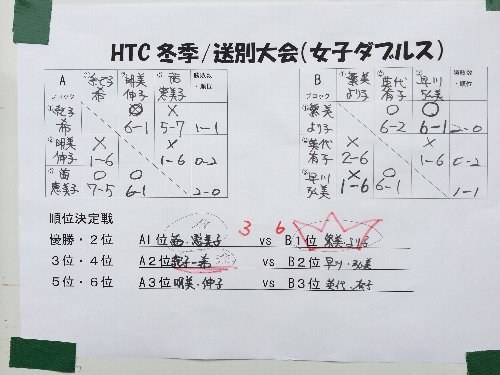 HTC 冬季/送別大会(女子ダブルス)
A ブロック ①紀子 希 ②明美 伸子 ③苗 恵美子 勝敗数・順位
①紀子 希 ○ 6-1 × 5-7 1-1
②明美 伸子 × 1-6 × 1-6 0-2
③苗 恵美子 ○ 7-5 ○ 6-1 2-0
B ブロック ①繁美 より子 ②英代 有子 ③早川 弘美 勝敗数・順位
①繁美 より子 ○ 6-2 ○ 6-1 2-0
②英代 有子 × 2-6 × 1-6 0-2
③早川 弘美 × 1-6 ○ 6-1 1-1
順位決定戦
3 6
優勝・2位 A1位 苗・恵美子 vs B1位 繁美・より子
3位・4位 A2位 紀子-希 vs B2位 早川・弘美
5位・6位 A3位 明美・伸子 vs B3位 英代・有子